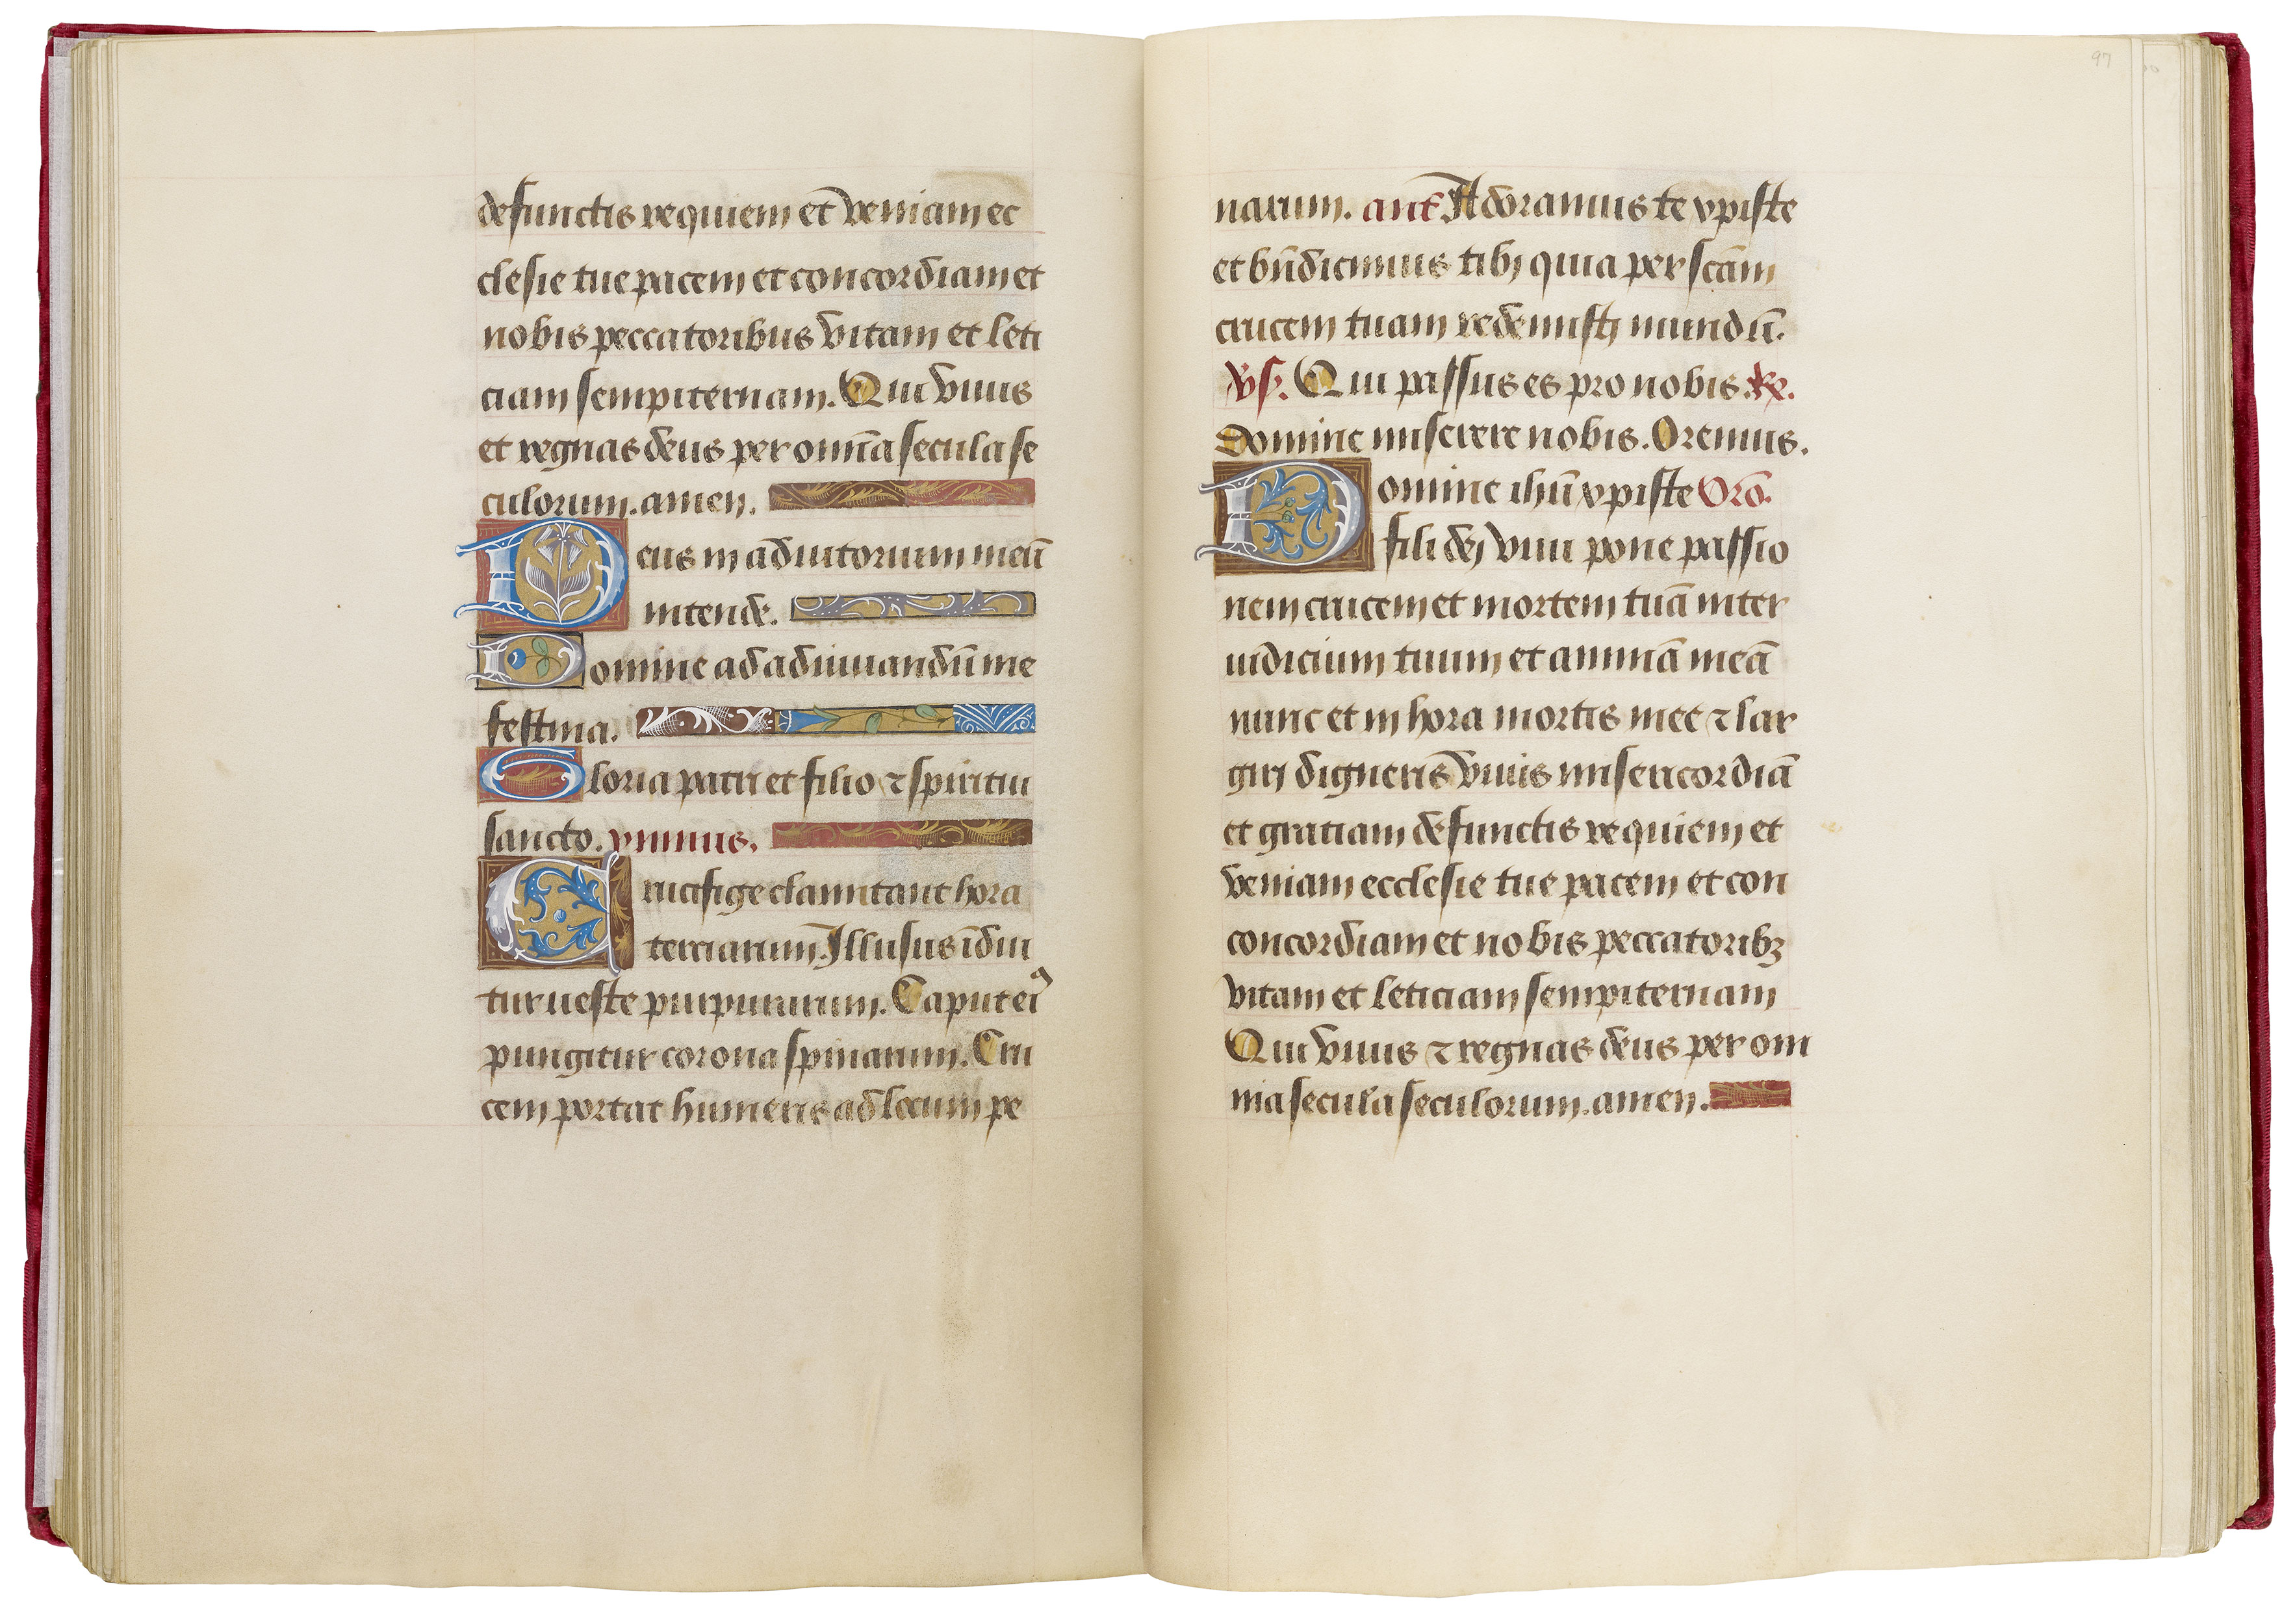 defunctis requiem et veniam ec
clesie tue pacem et concordiam et
nobis peccatoribus vitam et leti
ciam sempiternam. Qui viuis
et regnas deus per om̄ia secula se
culorum. amen.
Deus in adiutorium meū
intende.
Domine ad adiuuandū me
festina.
Gloria patri et filio ⁊ spiritui
sancto. ymnus.
Crucifige clamitant hora
terciarum. Illusus īdui
tur ueste purpurarum. Caput eiꝰ
pungitur corona spinarum. Cru
cem portat humeris ad locum pe
97
narum. ant̄ Adoramus te xpiste
et bn̄dicimus tibi quia per scām
crucem tuam redemisti mundū.
vs. Qui passus es pro nobis. ℟.
Domine miserere nobis. Oremus.
Domine ihū xpiste Orō.
fili dei viui pone passio
nem crucem et mortem tuā inter
iudicium tuum et animā meā
nunc et in hora mortis mee ⁊ lar
giri digneris viuis misericordiā
et gratiam defunctis requiem et
veniam ecclesie tue pacem et con
cordiam et nobis peccatoribꝫ
vitam et leticiam sempiternam
Qui viuis ⁊ regnas deus per om
nia secula seculorum. amen.